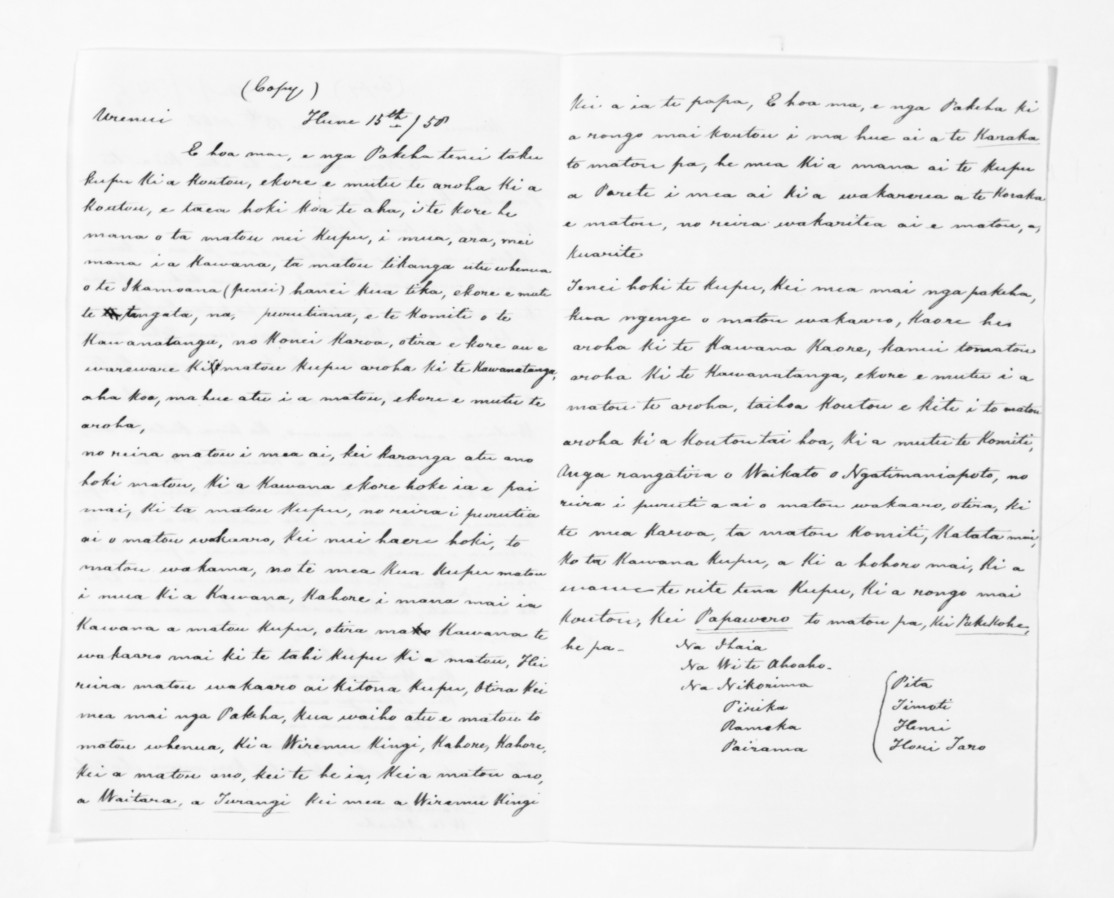 (Copy)
Urenui Hune 15th / 58
E hoa ma, e nga Pakeha tenei taku
kupu ki a koutou, ekore e mutu te aroha ki a
koutou, e taea hoki koa te aha, i te kore he
mana o ta matou nei kupu, i mua, ara, mei
mana i a Kawana, ta matou tikanga utu whenua
o te Ikamoana (penei) hanei kua tika, ekore e mate
te tangata, na, purutiana, e te Komiti o te
Kawanatanga, no konei karoa, otira e kore au e
wareware ki matou kupu aroha ki te Kawanatanga,
aha koa, mahue atu i a matou, ekore e mutu te
aroha,
no reira matou i mea ai, kei karanga atu ano
hoki matou, ki a Kawana ekore hoki ia e pai
mai, ki ta matou kupu, no reira i purutia
ai o matou wakaaro, kei nui haere hoki, to
matou wakama, no te mea kua kupu matou
i mua ki a Kawana, kahore i mana mai ia
Kawana a matou kupu, otira ma Kawana te
wakaaro mai ki te tahi kupu ki a matou, Hei
reira matou wakaaro ai ki tona kupu, Otira kei
mea mai nga Pakeha, kua waiho atu e matou to
matou whenua, ki a Wiremu Kingi, Kahore, Kahore,
kei a matou ano, kei te he ia, kei a matou ano,
a Waitara, a Turangi kei mea a Wiremu Kingi
kei a ia te papa, E hoa ma, e nga Pakeha ki
a rongo mai koutou i ma hue ai a te Karaka
to matou pa, he mea ki a mana ai te kupu
a Parete i mea ai ki a wakarerea a te Karaka
e matou, no reira wakaritea ai e matou, a,
kuarite
Tenei hoki te kupu, kei mea mai nga pakeha,
kua ngenge o matou wakaaro, kaore he
aroha ki te Kawana Kaore, kanui tomatou
aroha ki te Kawanatanga, ekore e mutu i a
matou te aroha, taihoa koutou e kite i to matou
aroha ki a koutou tai hoa, ki a mutu te Komiti,
Unga rangatira o Waikato o Ngatimaniapoto, no
reira i puruti a ai o matou wakaaro, otira, ki
te mea karoa, ta matou komiti, Katata mai,
Ko ta Kawana kupu, a ki a hohoro mai, ki a
wawe te rite tena kupu, ki a rongo mai
koutou, kei Papawero to matou pa, kei Pukekohe,
he pa -
Na Ihaia
Na Wi te Ahoaho -
Na Nikorima
Pirika
Rameka
Pairama
Pita
Timoti
Henri
Hori Taro